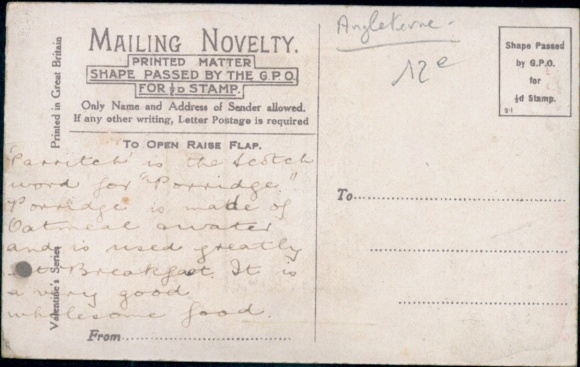 Printed in Great Britain
Valentine's Series
MAILING NOVELTY.
PRINTED MATTER
SHAPE PASSED BY THE G.P.O.
FOR ½D STAMP.
Only Name and Address of Sender allowed.
If any other writing, Letter Postage is required
TO OPEN RAISE FLAP.
"Parritch" is the Scotch
word for "Porridge."
Porridge is made of
Oatmeal & water
and is used greatly
at Breakfast. It is
a very good
wholesome food.
From
Angleterre -
12e
Shape Passed
by G.P.O.
for
½d Stamp.
To